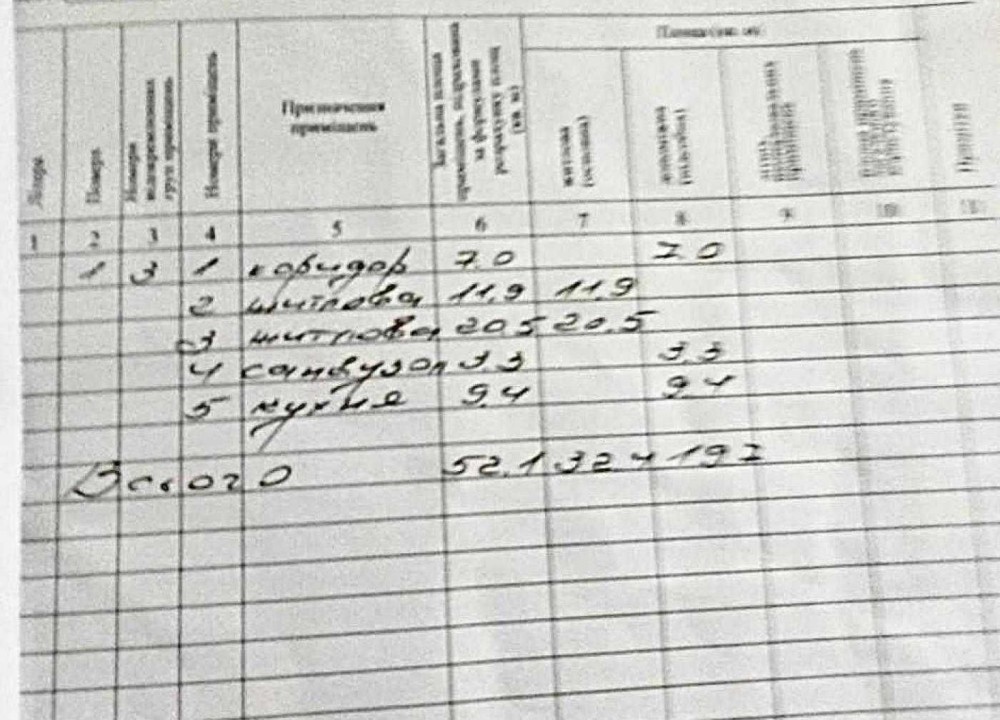 Площа (кв. м)
Літера
Поверх
Номери
відокремлених
груп приміщень
Номери приміщень
Призначення
приміщень
Загальна площа
приміщень, підрахована
за формулами
розрахунку площ
(кв. м)
житлова
(основна)
допоміжна
(підсобна)
Примітки
1 2 3 4 5 6 7 8 9 10 11
1 3 1 коридор 7.0 7.0
2 житлова 11,9 11,9
3 житлова 20.5 20.5
4 санвузол 3.3 3.3
5 кухня 9.4 9.4
Всього 52.1 32.4 19.7